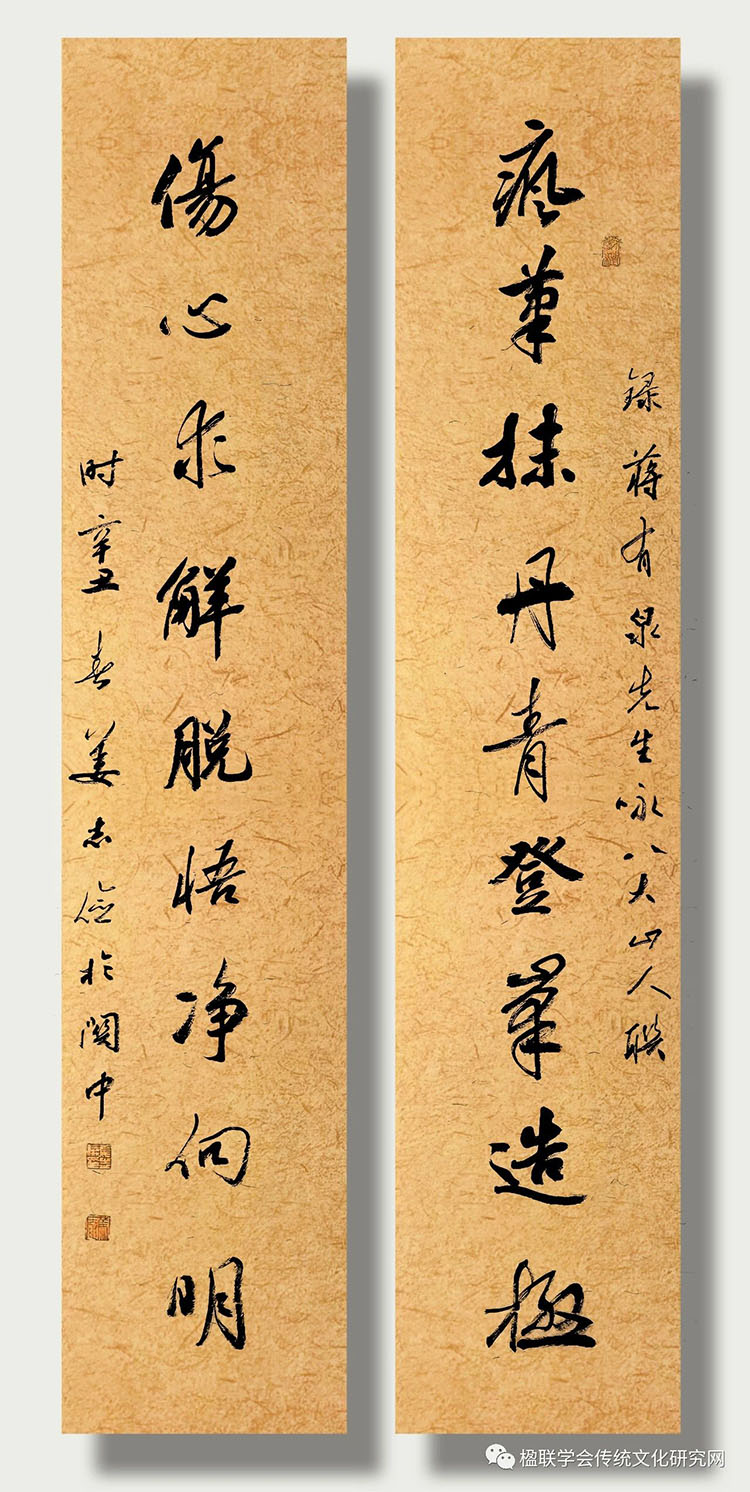 録蒋有泉先生咏八大山人联
瘋筆抹丹青登峯造極
傷心求解脱悟净向明
时辛丑春姜志俭於関中
楹联学会传统文化研究网